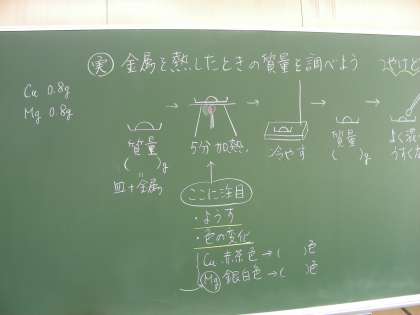 実 金属を熱したときの質量を調べよう
Cu 0.8g
Mg 0.8g
質量
( )g
皿+金属
5分加熱.
冷やす
質量
( )g
よく混
ここに注目
・ようす
・色の変化
Cu 赤茶色→( )色
Mg 銀白色→( )色